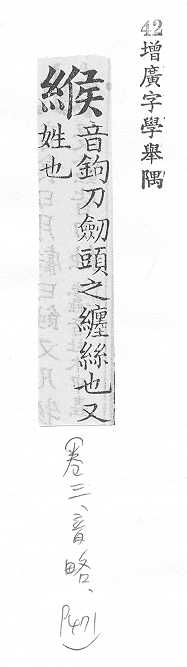 42增廣字學舉隅
緱音鉤刀劒頭之纏絲也又
姓也
(卷三、音略、P471)